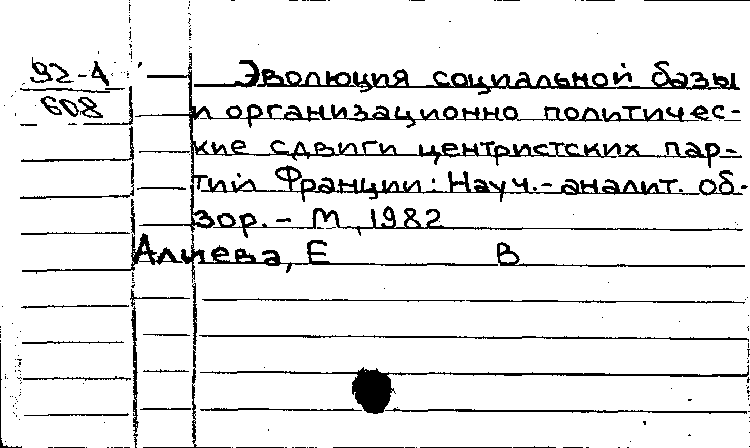 92-4
608
Эволюция социальной базы
и организационно политичес-
кие сдвиги центристских пар-
тий Франции: Науч.-аналит. об-
зор. - М, 1982
Алиева, Е В